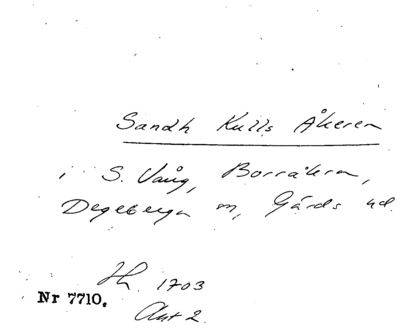 Sandh Kulls Åkeren
i S. Vång, Borråkra,
Degeberga sn, Gärds hd.
Hh. 1703
Nr 7710.
Akt 2.